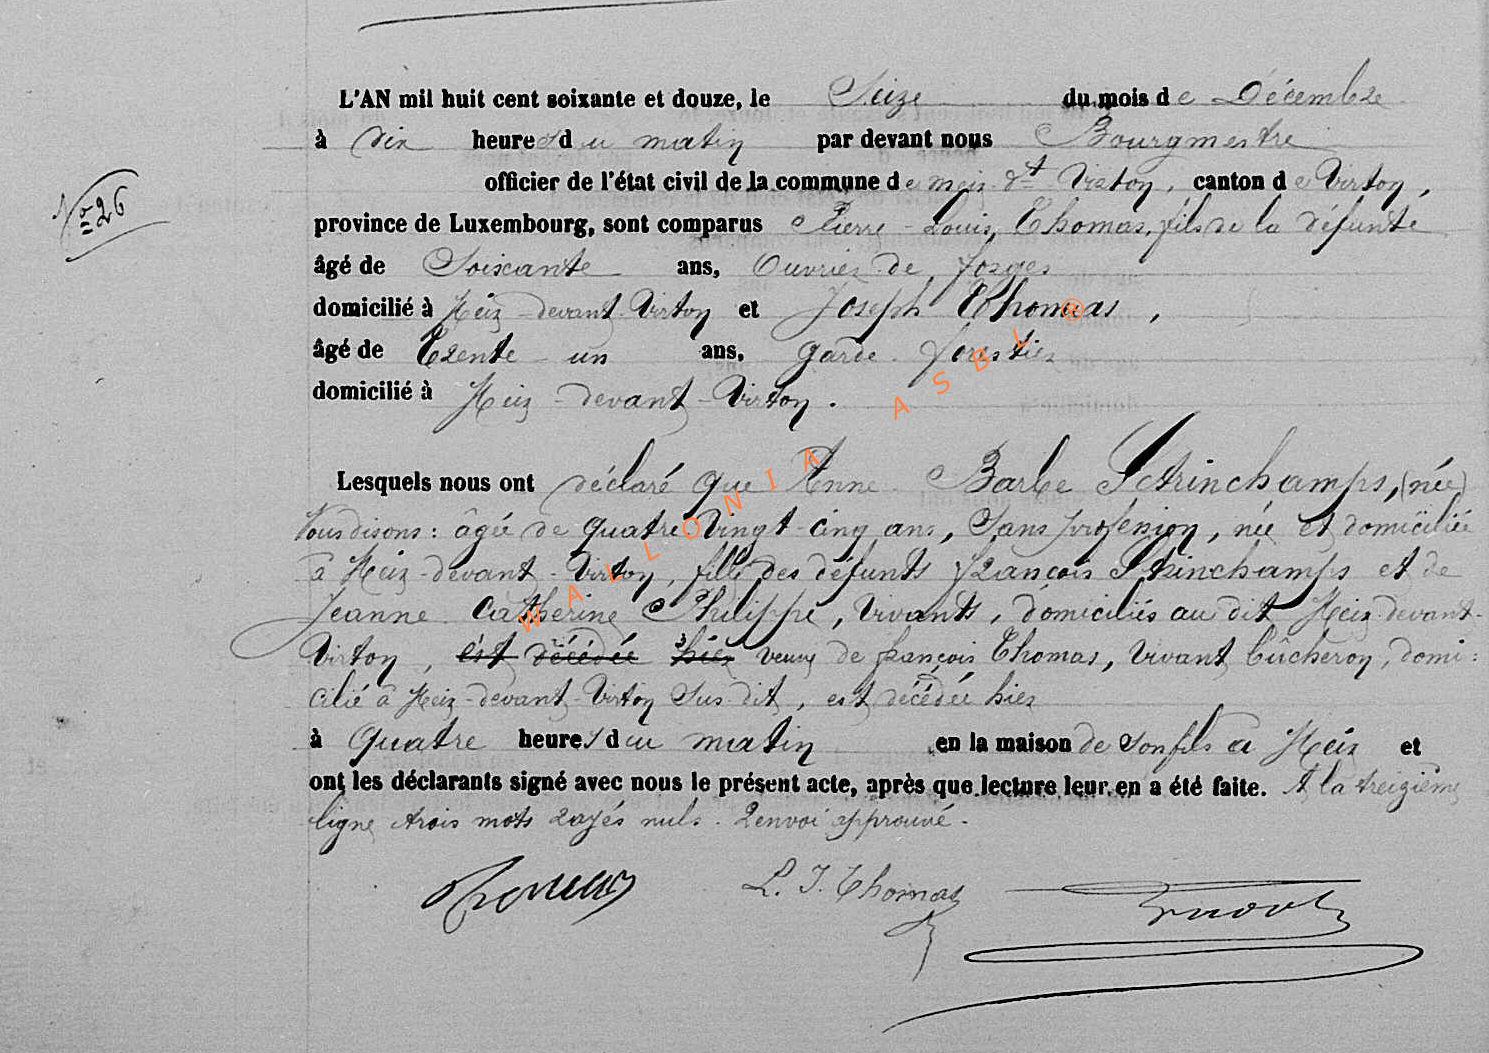 L'AN mil huit cent soixante et douze, le Seize du mois de Décembre
à dix heures du matin par devant nous Bourgmestre
officier de l'état civil de la commune de Meix-dt-Virton, canton de Virton,
N° 26
province de Luxembourg, sont comparus Pierre-Louis Thomas, fils de la défunte
âgé de Soixante ans, Ouvrier de forges
domicilié à Meix-devant-Virton et Joseph Thomas,
âgé de Trente-un ans, garde-forestier
domicilié à Meix-devant-Virton.
WALLONIA ASBL ®
Lesquels nous ont déclaré que Anne Barbe Strinchamps, (née)
Nous disons: âgée de quatre-vingt-cinq ans, Sans profession, née et domiciliée
à Meix-devant-Virton, fille des défunts françois Strinchamps et de
Jeanne Catherine Philippe, Vivants, domiciliés au dit Meix-devant-
Virton, est décédée hier veuve de françois Thomas, Vivant bûcheron, domi:
cilié à Meix-devant-Virton Sus-dit, est décédée hier
à quatre heures du matin en la maison de Son fils à Meix et
ont les déclarants signé avec nous le présent acte, après que lecture leur en a été faite. A la treizième
ligne trois mots rayés nuls. Renvoi approuvé.
Thomas L. J. Thomas